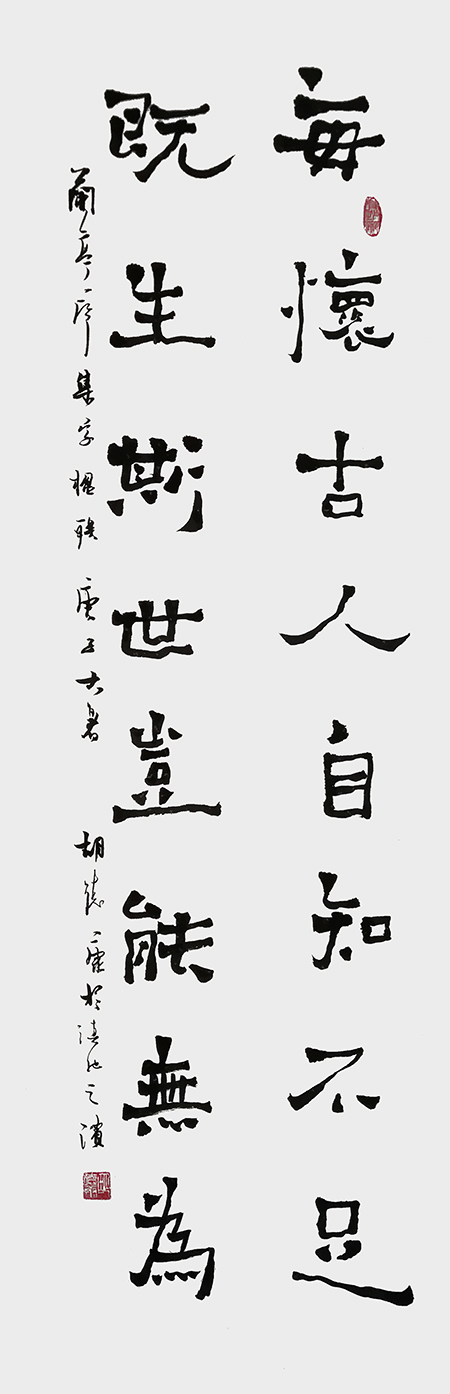 每懷古人自知不足
既生斯世豈能無為
蘭亭序集字楹聯 庚子大暑 胡於滇池之濱